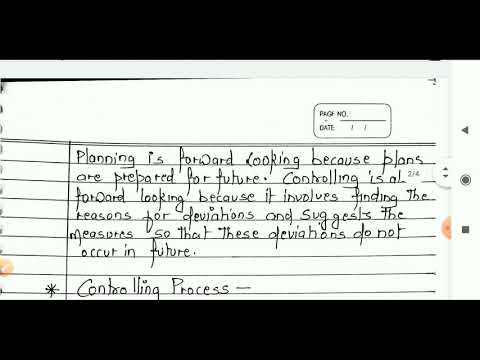 PAGE NO.:
DATE / /
Planning is forward looking because plans
are prepared for future. Controlling is al
2/4
forward looking because it involves finding the
reasons for deviations and suggests the
measures so that these deviations do not
occur in future.
* Controlling Process —